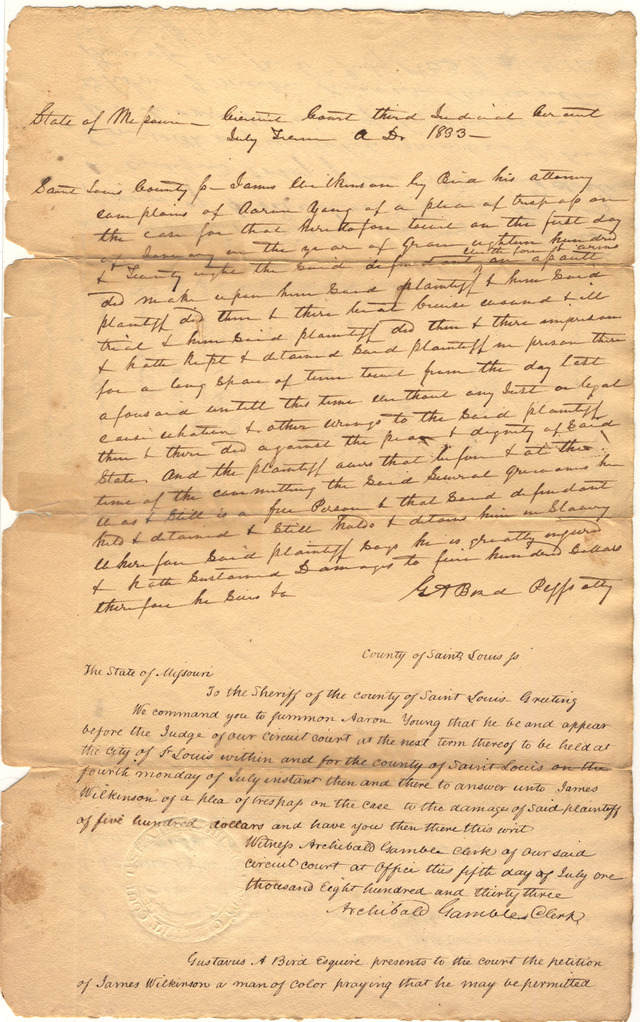 State of Missouri — Circuit Court third Judicial Circuit
July Term A D. 1833 —
Saint Louis County ss — James Wilkinson by Bird his attorney
complains of Aaron Young of a plea of trespass on
the case for that heretofore towit on the first day
of January in the year of grace eighteen hundred
& Twenty eight the Said defendant with force & arms an assault
did make upon him Said plaintiff & him Said
plaintiff did then & there beat bruise wound & ill
treat & him Said plaintiff did then & there imprison
& hath Kept & detained Said plaintiff in prison there
for a long Space of time towit from the day last
aforesaid untill this time without any Just or legal
cause whatever & other wrongs to the Said plaintiff
then & there did against the peace & dignity of Said
State. And the plaintiff avers that before & at the
time of the committing the Said Several grievances he
was & Still is a free Person & that Said defendant
held & detained & Still holds & detains him in Slavery
Wherefore Said plaintiff Says he is greatly injured
& hath Sustained Damages to five hundred dollars
therefore he Sues &c
G A Bird Plffs atty
County of Saint Louis ss
The State of Missouri
To the Sheriff of the county of Saint Louis Greeting
We command you to summon Aaron Young that he be and appear
before the Judge of our circuit court at the next term thereof to be held at
the city of St Louis within and for the county of Saint Louis on the
fourth monday of July instant then and there to answer unto James
Wilkinson of a plea of trespass on the case to the damage of said plaintiff
of five hundred dollars and have you then there this writ
Witness Archibald Gamble clerk of our said
circuit court at office this fifth day of July one
thousand Eight hundred and thirty three
Archibald Gamble Clerk
Gustavus A Bird Esquire presents to the court the petition
of James Wilkinson a man of color praying that he may be permitted